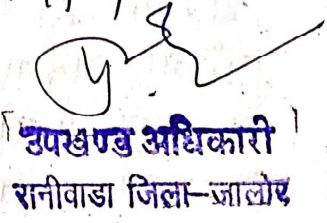 उपखण्ड अधिकारी
रानीवाडा जिला-जालोर